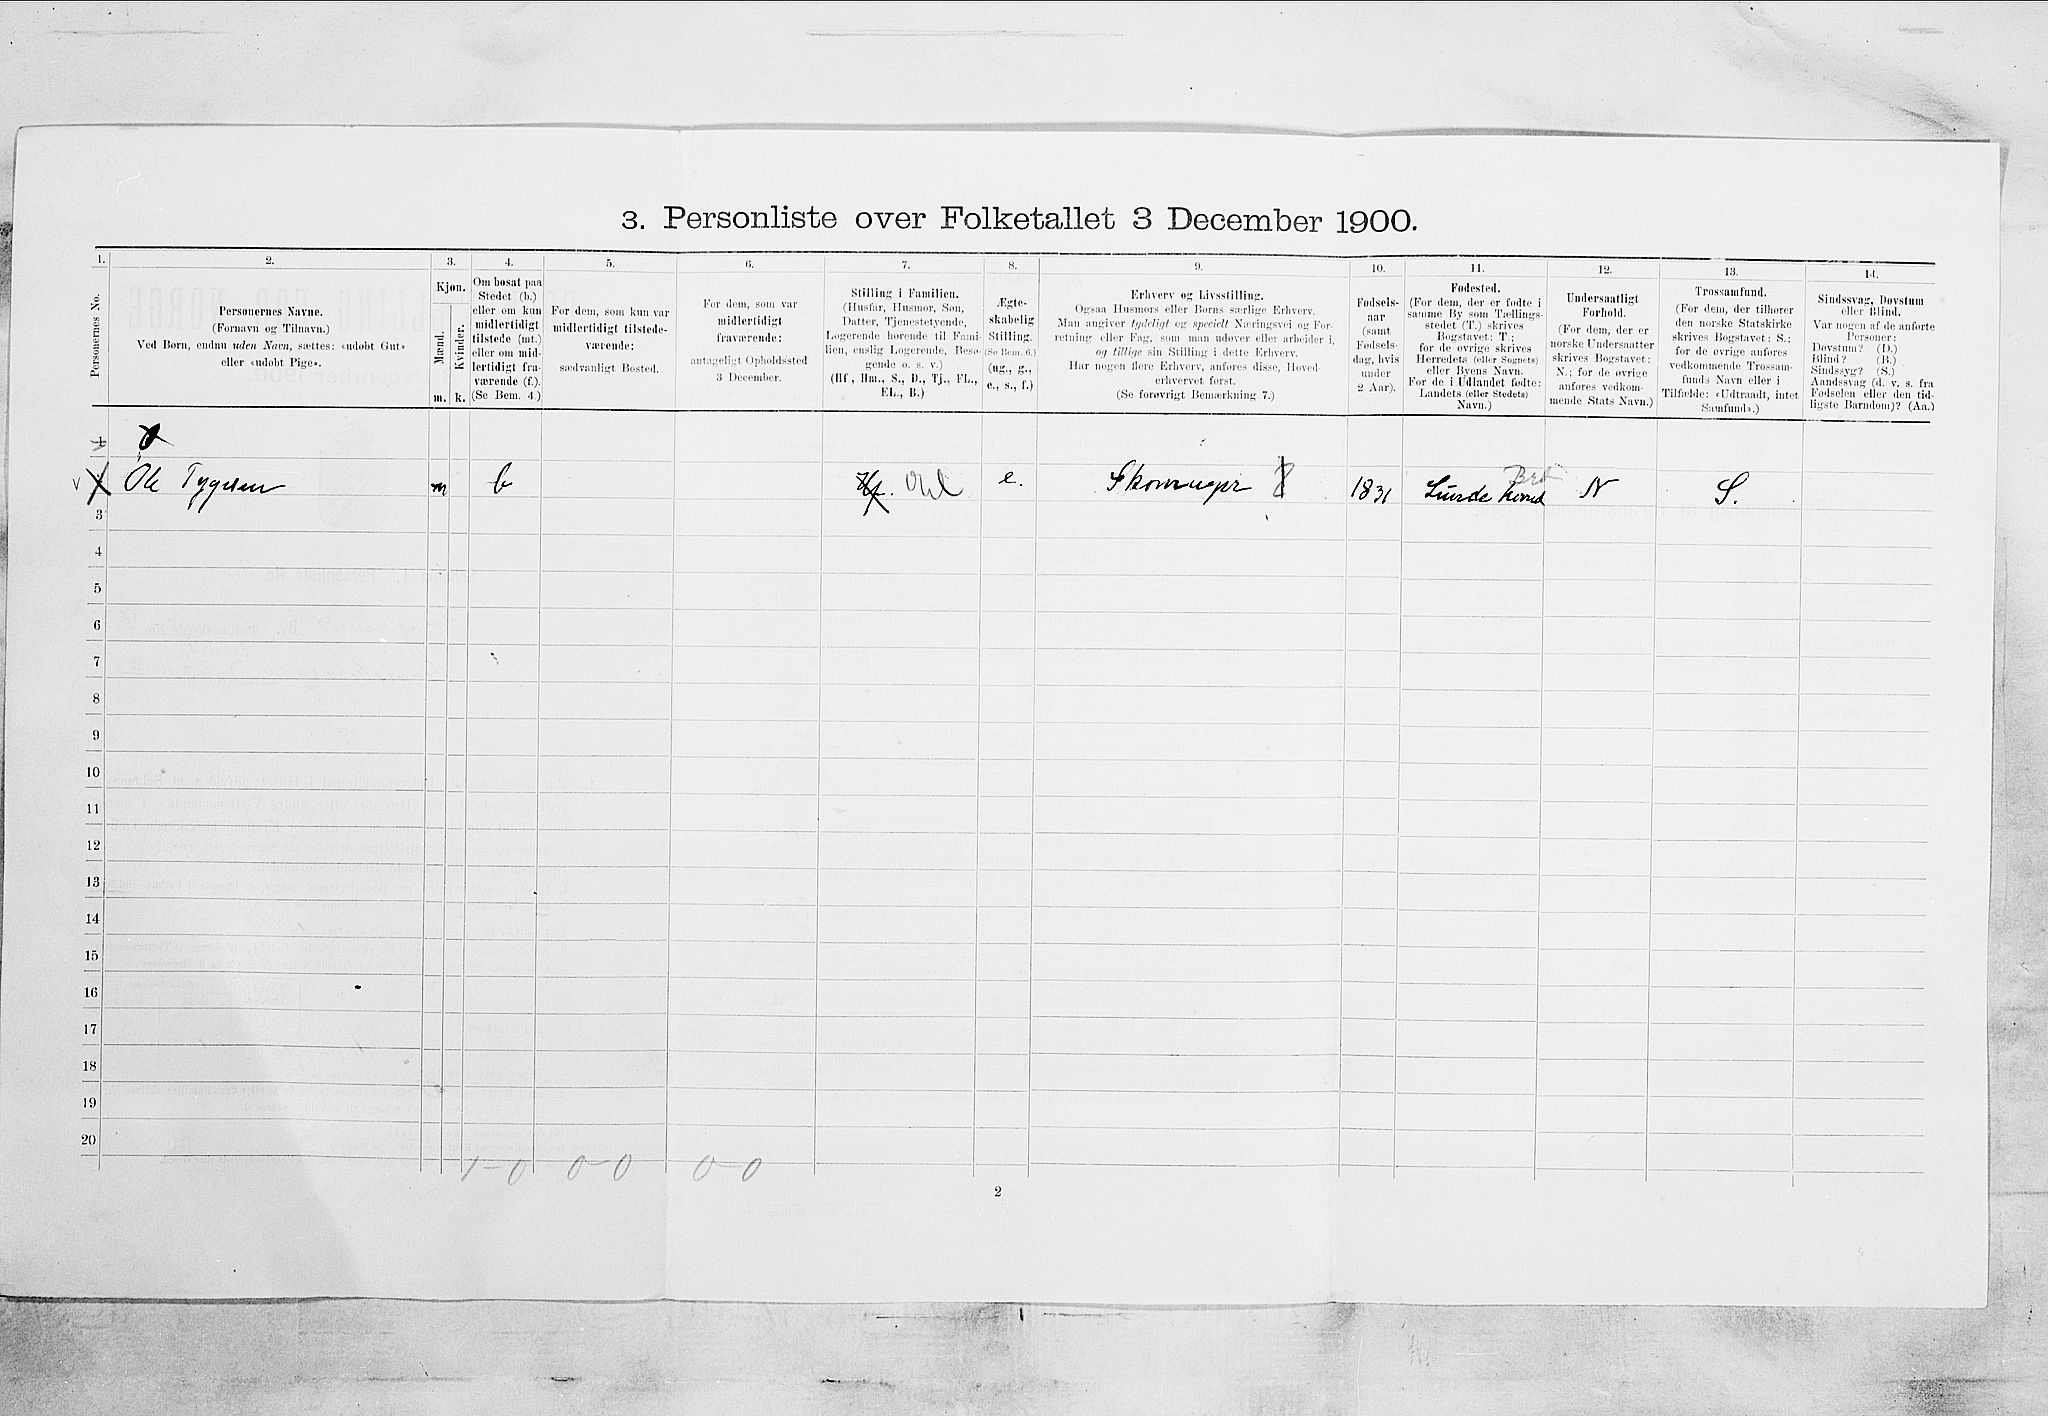 3. Personliste over Folketallet 3 December 1900.
1.
2.
3.
4.
5.
6.
7.
8.
9.
10.
11.
12.
13.
14.
Personernes No.
Personernes Navne.
(Fornavn og Tilnavn.)
Ved Børn, endnu uden Navn, sættes: «udøbt Gut»
eller «udøbt Pige».
Kjøn.
Mænd.
Kvinder.
m.
k.
Om bosat paa
Stedet (b.)
eller om kun
midlertidigt
tilstede (mt.)
eller om mid-
lertidigt fra-
værende (f.).
(Se Bem. 4.)
For dem, som kun var
midlertidigt tilstede-
værende:
sædvanligt Bosted.
For dem, som var
midlertidigt
fraværende:
antageligt Opholdssted
3 December.
Stilling i Familien.
(Husfar, Husmor, Søn,
Datter, Tjenestetyende,
Logerende hørende til Fami-
lien, enslig Logerende, Besø-
gende o. s. v.)
(Hf., Hm., S., D., Tj., FL.,
EL., B.)
Ægte-
skabelig
Stilling.
(Se Bem. 6.)
(ug., g.,
e., s., f.)
Erhverv og Livsstilling.
Ogsaa Husmors eller Børns særlige Erhverv.
Man angiver tydeligt og specielt Næringsvei og For-
retning eller Fag, som man udøver eller arbeider i,
og tillige sin Stilling i dette Erhverv.
Har nogen flere Erhverv, anføres disse, Hoved-
erhvervet først.
(Se forøvrigt Bemærkning 7.)
Fødsels-
aar
(samt
Fødsels-
dag, hvis
under
2 Aar).
Fødested.
(For dem, der er fødte i
samme By som Tællings-
stedet (T.) skrives
Bogstavet: T.;
for de øvrige skrives
Herredets (eller Sognets)
eller Byens Navn.
For de i Udlandet fødte:
Landets (eller Stedets)
Navn.)
Undersaatligt
Forhold.
(For dem, der er
norske Undersaatter
skrives Bogstavet:
N.; for de øvrige
anføres vedkom-
mende Stats Navn.)
Trossamfund.
(For dem, der tilhører
den norske Statskirke
skrives Bogstavet: S.;
for de øvrige anføres
vedkommende Trossam-
funds Navn eller i
Tilfælde: «Udtraadt, intet
Samfund».)
Sindssvag, Døvstum
eller Blind.
Var nogen af de anførte
Personer:
Døvstum? (D.)
Blind? (B.)
Sindssyg? (S.)
Aandssvag (d. v. s. fra
Fødselen eller den tid-
ligste Barndom)? (Aa.)
Ole Tygesen m b Hf. e. 1831 N S.
3
4
5
6
7
8
9
10
11
12
13
14
15
16
17
18
19
20
1-0 0-0 0-0
2